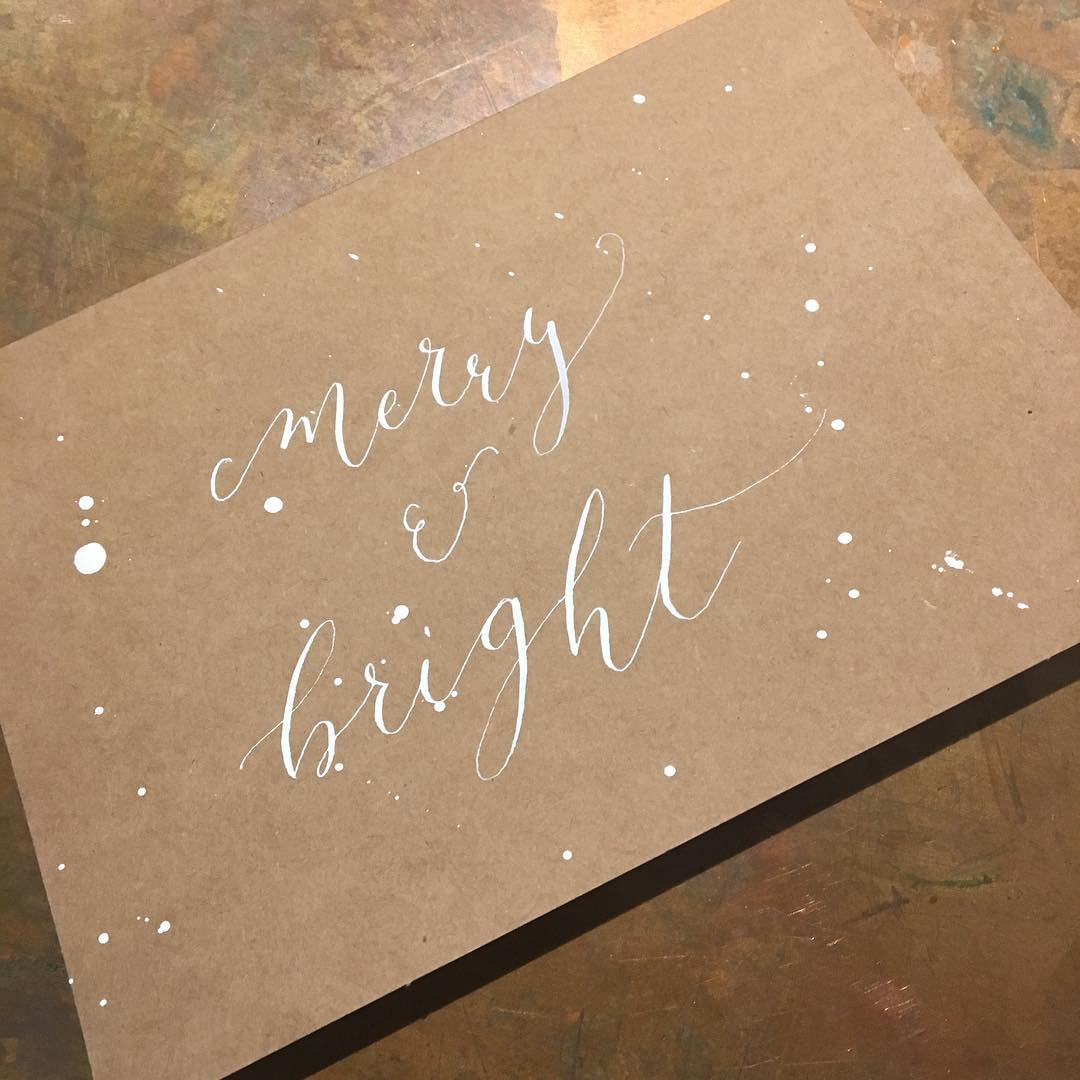 merry
&
bright